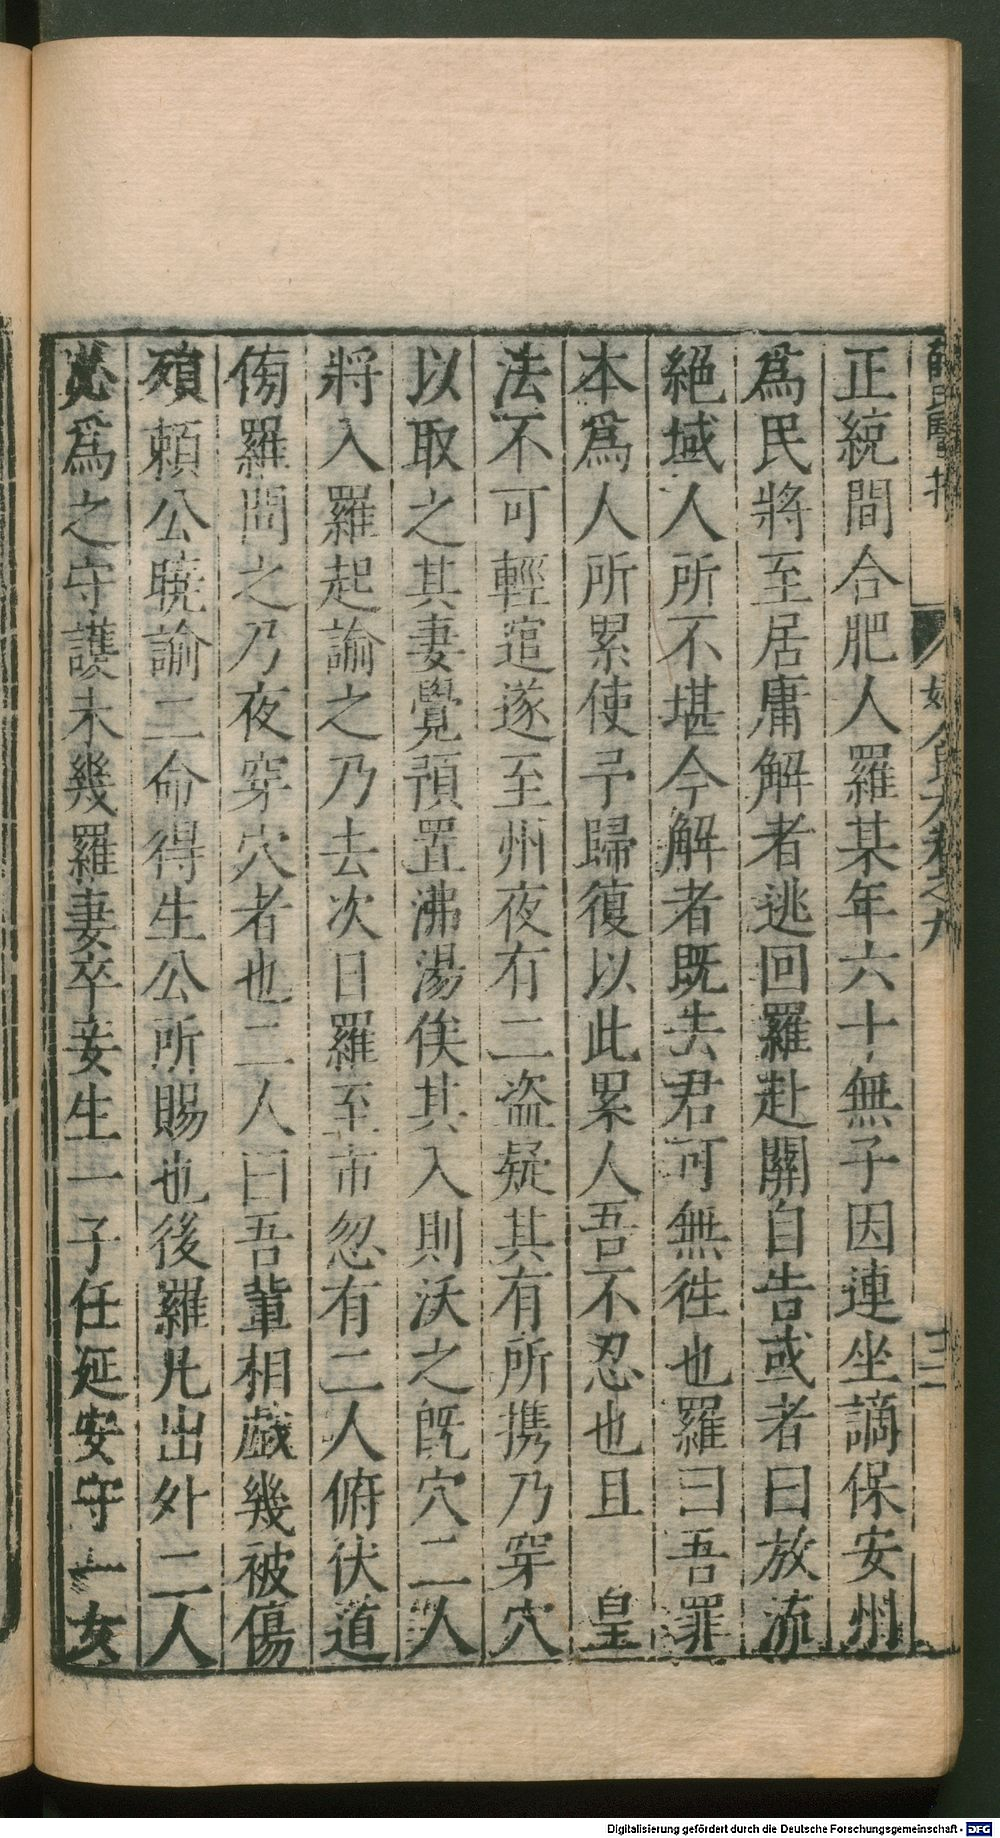 正統間合肥人羅某年六十無子因連坐謫保安州
爲民將至居庸解者逃回羅赴關自告或者曰放流
絕域人所不堪今解者既去君可無徃也羅曰吾罪
本爲人所累使予歸復以此累人吾不忍也且　皇
法不可輕逭遂至州夜有二盗疑其有所携乃穿穴
以取之其妻覺預置沸湯俟其入則沃之旣穴二人
將入羅起諭之乃去次日羅至市忽有二人俯伏道
傍羅問之乃夜穿穴者也二人曰吾輩相戱幾被傷
殞頼公曉諭二命得生公所賜也後羅凡出外二人
必爲之守護未幾羅妻卒妾生一子任延安守一女
卷之九
十二
Digitalisierung gefördert durch die Deutsche Forschungsgemeinschaft - DFG